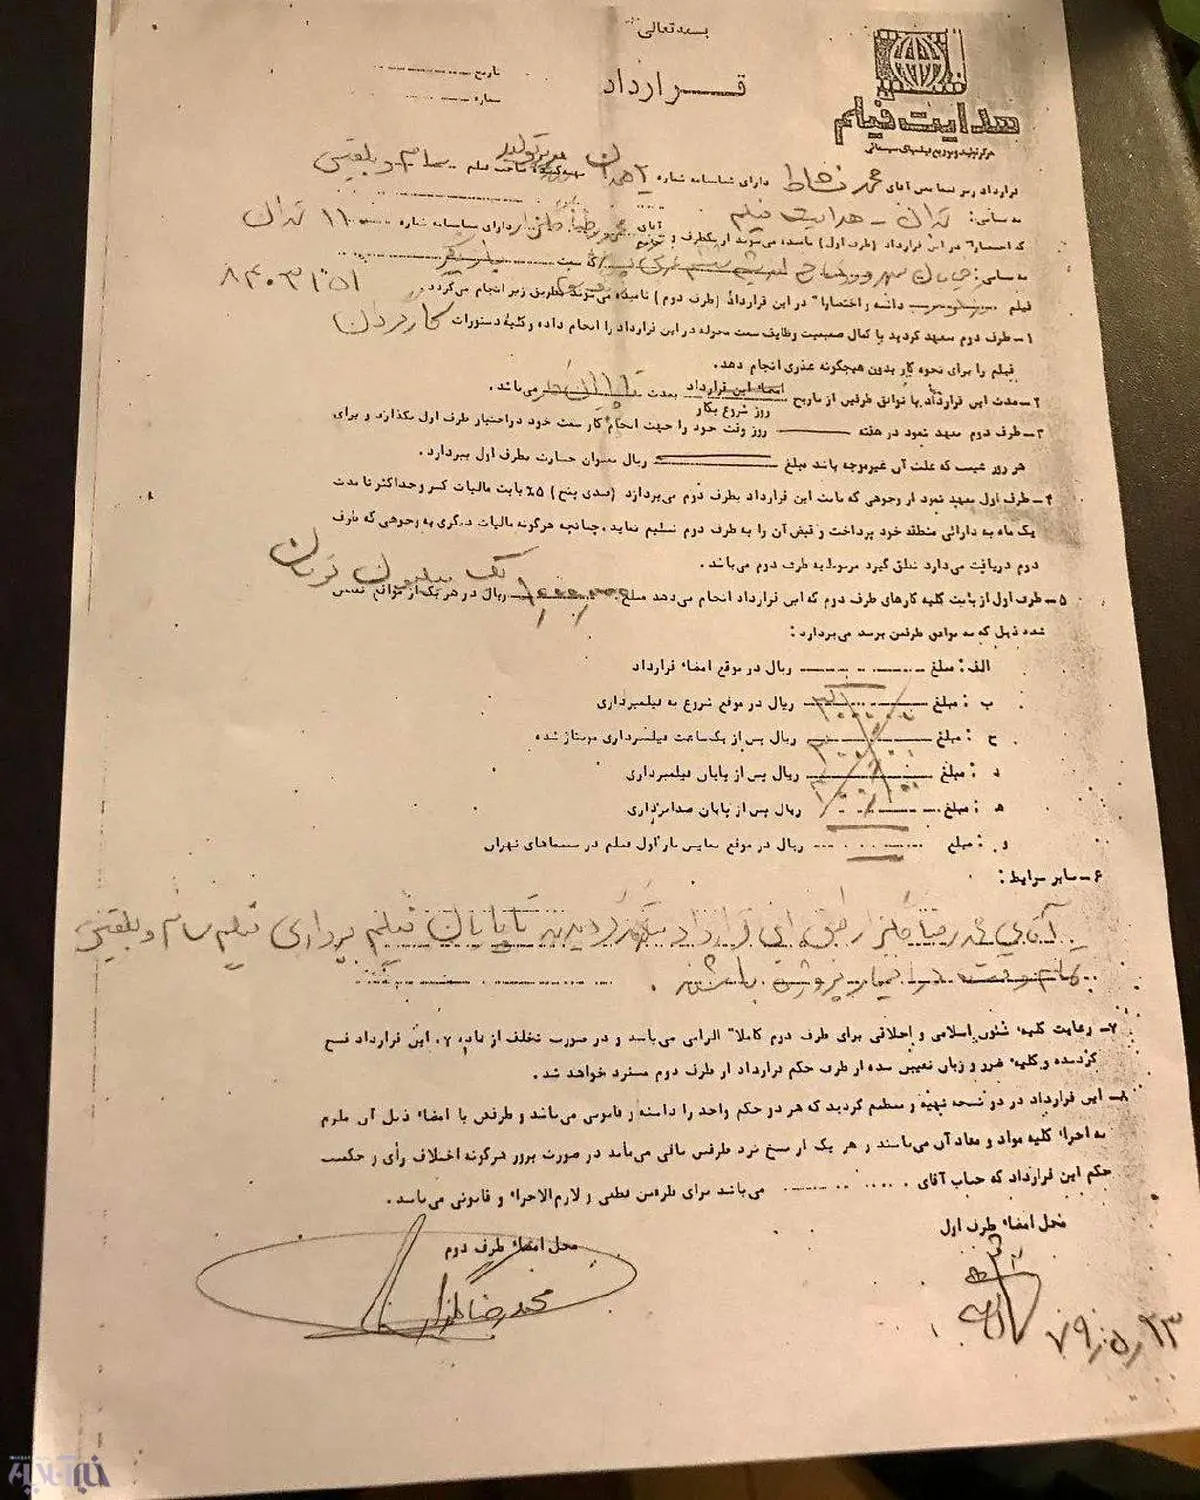 بسمه تعالی
قـــرارداد
تاریخ
شماره
هدایت فیلم
مرکز تولید و توزیع فیلمهای سینمائی
قرارداد زیر فیما بین آقای محمد نشاط دارای شناسنامه شماره ۲ همدان مدیر تولید فیلم سام و نرگس
به نشانی: تهران - هدایت فیلم
که اختصارا" در این قرارداد (طرف اول) نامیده می‌شوند از یکطرف و آقای محمدرضا گلزار دارای شناسنامه شماره ۱۱۰۰۰ تهران
به نشانی: خیابان سهروردی که سمت بازیگر
۸۴۰۳۱۵۱
فیلم داشته و اختصارا" در این قرارداد (طرف دوم) نامیده می‌شوند بطریق زیر انجام می‌گردد
۱- طرف دوم متعهد گردید با کمال صمیمیت وظایف سمت محوله در این قرارداد را انجام داده و کلیهٔ دستورات کارگردان
فیلم را برای نحوه کار بدون هیچگونه عذری انجام دهد.
۲- مدت این قرارداد با توافق طرفین از تاریخ امضاء این قرارداد بمدت می‌باشد.
روز شروع بکار
۳- طرف دوم متعهد نمود در هفته روز وقت خود را جهت انجام کار سمت خود در اختیار طرف اول بگذارد و برای
هر روز غیبت که علت آن غیرموجه باشد مبلغ ریال بعنوان خسارت بطرف اول بپردازد.
۴- طرف اول متعهد نمود از وجوهی که بابت این قرارداد بطرف دوم می‌پردازد (صدی پنج) ۵٪ بابت مالیات کسر و حداکثر تا مدت
یک ماه به دارائی منطقه خود پرداخت و قبض آن را به طرف دوم تسلیم نماید. چنانچه هرگونه مالیات دیگری به وجوهی که طرف
دوم دریافت می‌دارد تعلق گیرد مربوط به طرف دوم می‌باشد.
یک میلیون تومان
۵- طرف اول از بابت کلیه کارهای طرف دوم که این قرارداد انجام می‌دهد مبلغ ۱۰,۰۰۰,۰۰۰ ریال در هر یک از مواقع تعیین
شده ذیل که به توافق طرفین برسد می‌پردازد:
الف: مبلغ ریال در موقع امضاء قرارداد
ب: مبلغ ریال در موقع شروع به فیلمبرداری
ج: مبلغ ریال پس از یکساعت فیلمبرداری مونتاژ شده
د: مبلغ ریال پس از پایان فیلمبرداری
ه: مبلغ ریال پس از پایان صدابرداری
و: مبلغ ریال در موقع نمایش بار اول فیلم در سینماهای تهران
۶- سایر شرایط:
آقای محمدرضا گلزار طبق این قرارداد متعهد گردیدند تا پایان فیلم برداری فیلم سام و نرگس
تمام وقت در اختیار پروژه باشند.
۷- رعایت کلیه شئون اسلامی و اخلاقی برای طرف دوم کاملا" الزامی می‌باشد و در صورت تخلف از ماده ۷، این قرارداد فسخ
گردیده و کلیه ضرر و زیان تعیین شده از طرف حکم قرارداد از طرف دوم مسترد خواهد شد.
۸- این قرارداد در دو نسخه تهیه و تنظیم گردید که هر دو حکم واحد را داشته و قانونی می‌باشد و طرفین با امضاء ذیل آن ملزم
به اجراء کلیه مواد و مفاد آن می‌باشند و هر یک از نسخ نزد طرفین باقی می‌ماند در صورت بروز هرگونه اختلاف رأی و حکمیت
حکم این قرارداد که جناب آقای می‌باشد برای طرفین قطعی و لازم‌الاجراء و قانونی می‌باشد.
محل امضاء طرف اول
محل امضاء طرف دوم
محمدرضا گلزار
۷۹/۵/۲۳
خبرآنلاین